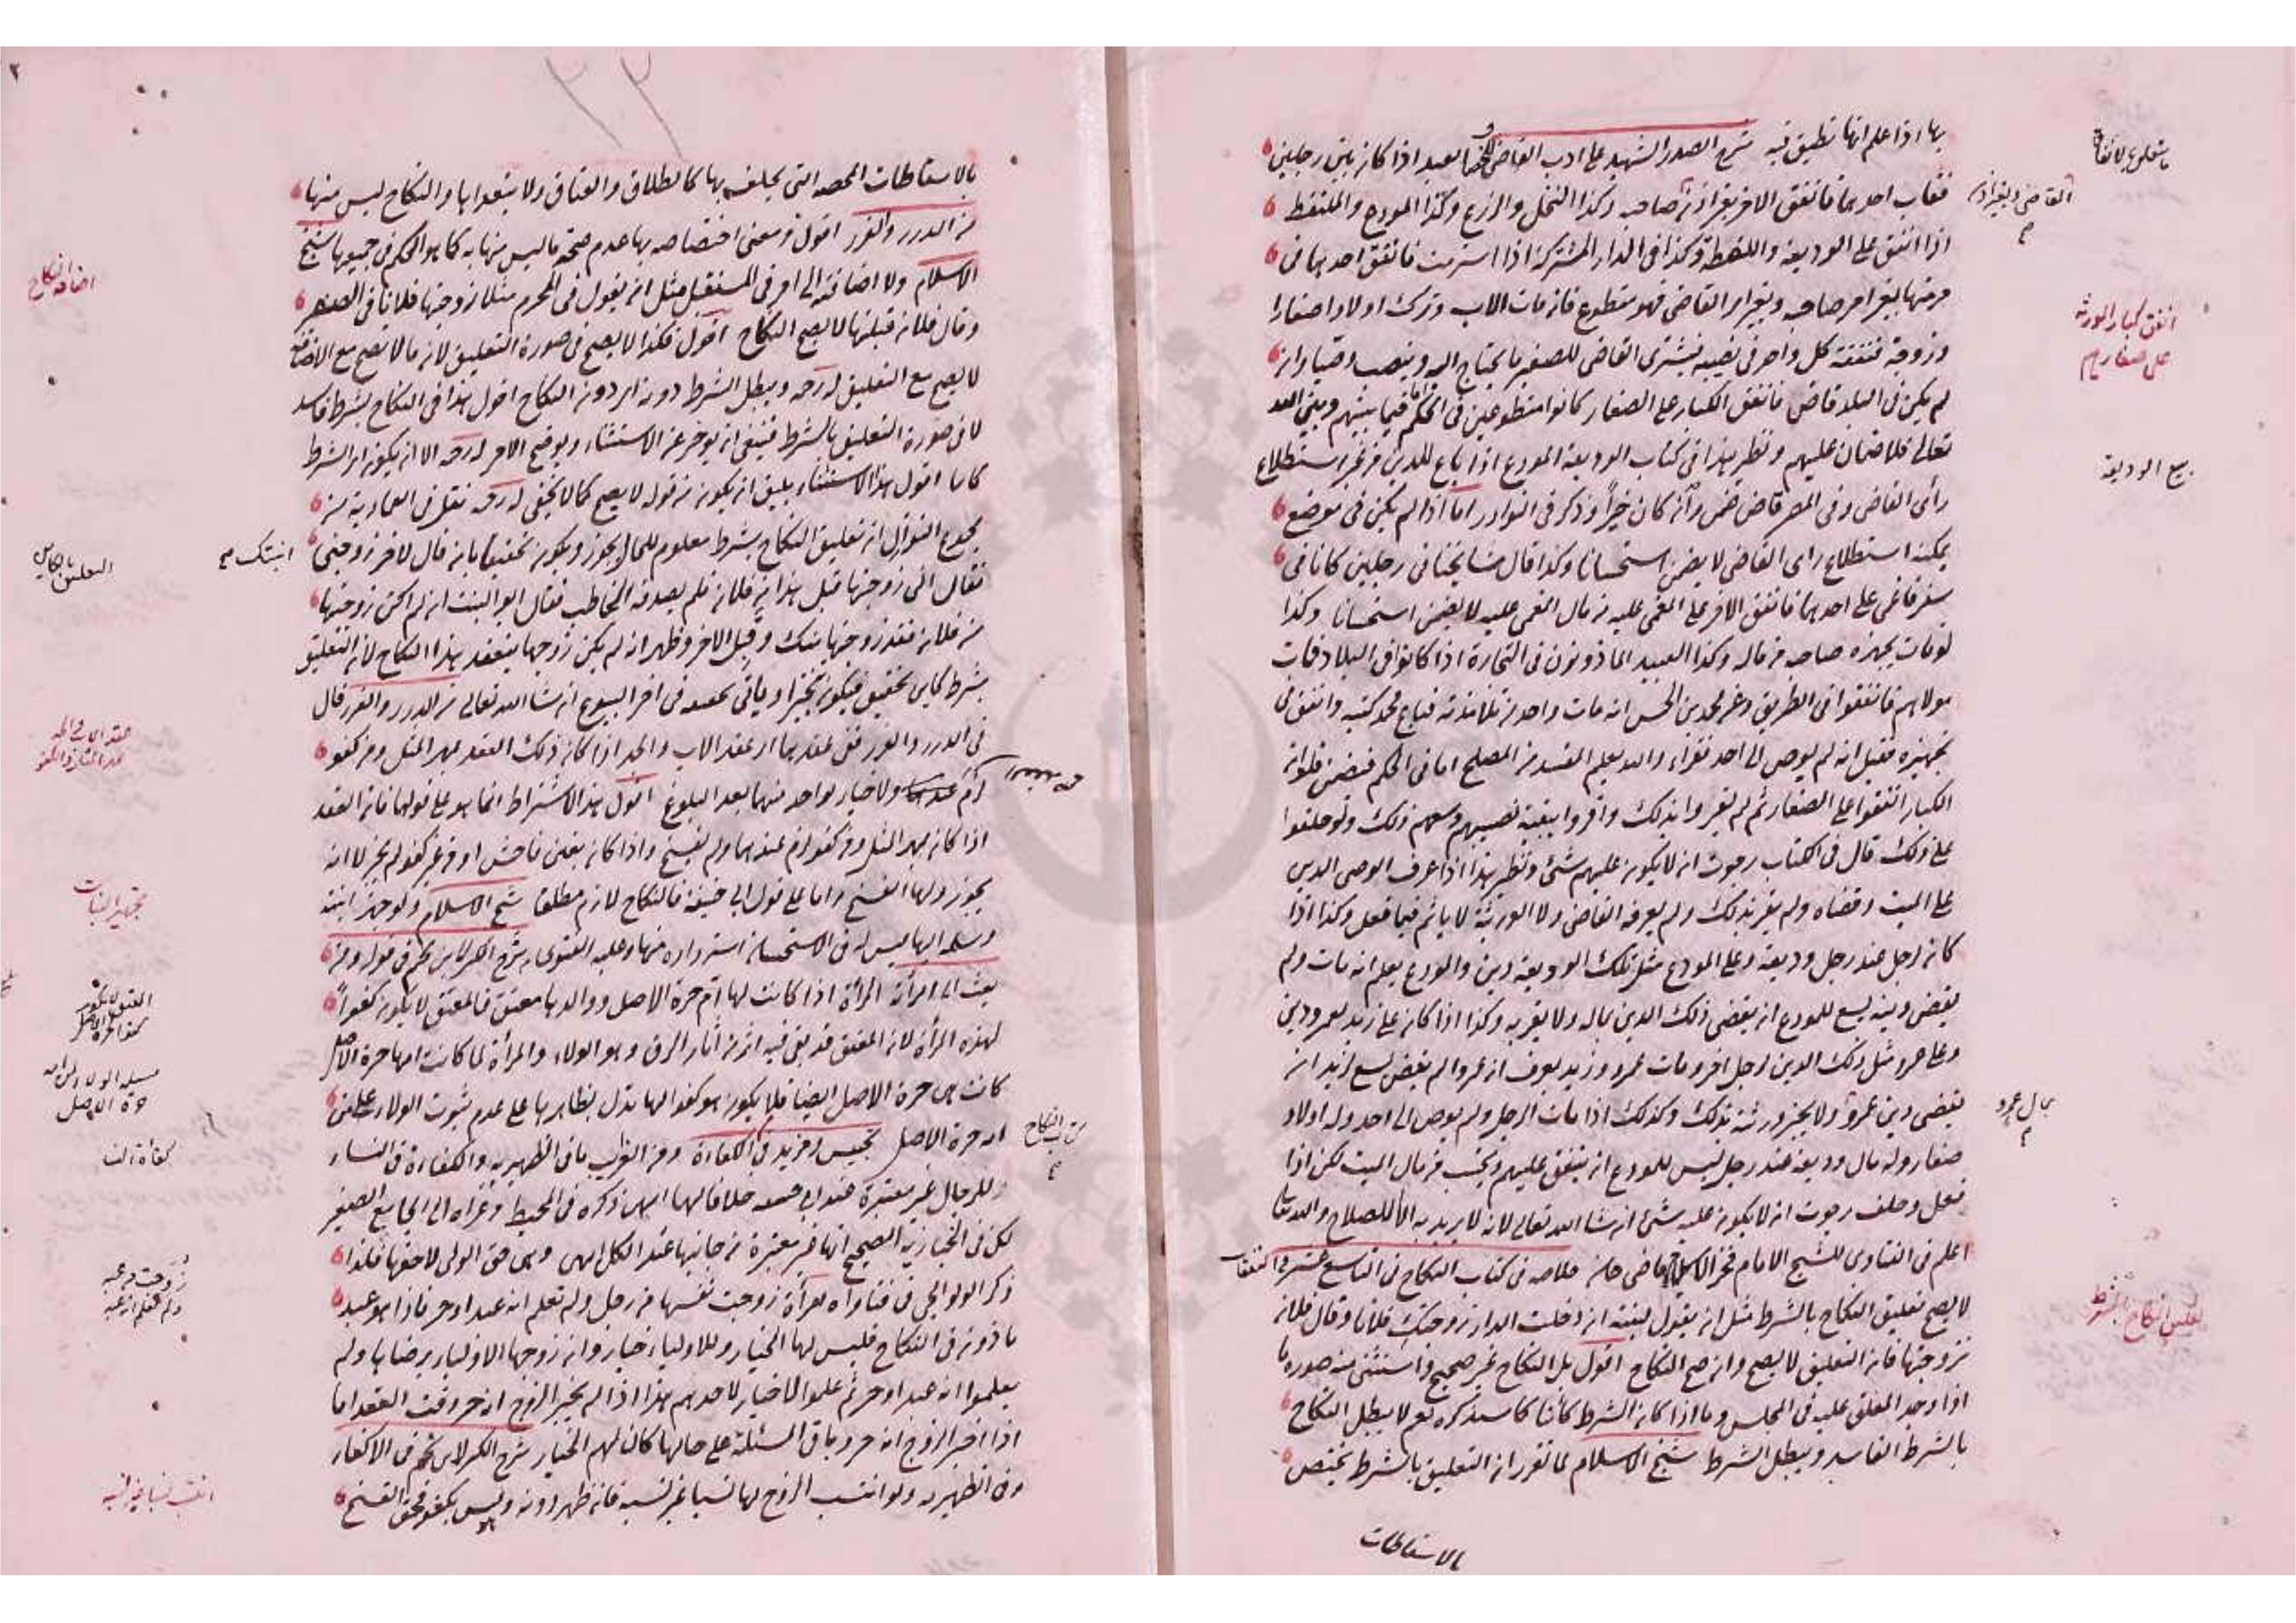 بها اذا علم انها تطيق فيه شرح الصدر الشهيد على ادب القاضي للخصاف عبد اذا كان بين رجلين
فغاب احدهما فانفق الاخر بغير اذن صاحبه وكذا النخل والزرع وكذا المودع والملتقط
اذا انفق على الوديعة واللقطة وكذا في الدار المشتركة اذا استرمت فانفق احدهما في
مرمتها بغير امر صاحبه وبغير امر القاضي فهو متطوع فان مات الاب وترك اولادا صغارا
وزوجة فنفقة كل واحد في نصيبه يشترى القاضي للصغير ما يحتاج اليه وينصب وصيا وان
لم يكن في البلد قاض فانفق الكبار على الصغار كانوا متطوعين في الحكم واما فيما بينهم وبين الله
تعالى فلا ضمان عليهم ونظير هذا في كتاب الوديعة المودع اذا باع اللبن من غير استطلاع
رأى القاضي وفي المصر قاض ضمن وأنه كان خيرا وذكر في النوادر اما اذا لم يكن في موضع
يمكنه استطلاع راى القاضي لا يضمن استحسانا وكذا قال مشايخنا في رجلين كانا في
سفر فاغمى على احدهما فانفق الاخر على المغمى عليه من مال المغمى عليه لا يضمن استحسانا وكذا
لو مات يجهزه صاحبه من ماله وكذا العبيد المأذونون في التجارة اذا كانوا في البلاد فمات
مولاهم فانفقوا في الطريق وعن محمد بن الحسن انه مات واحد من تلامذته فباع محمد كتبه وانفق في
تجهيزه فقيل انه لم يوص الى احد فقراء والله يعلم المفسد من المصلح اما في الحكم فيضمن فلو ان
الكبار انفقوا على الصغار ثم لم يقروا بذلك واقروا ببقية نصيبهم وسعهم ذلك ولو حلفوا
على ذلك قال في الكتاب رجوت ان لا يكون عليهم شئ ونظير هذا اذا عرف الوصى الدين
على الميت وقضاه ولم يقر بذلك ولم يعرفه القاضي ولا الورثة لا يأثم فيما فعل وكذا اذا
كان لرجل عند رجل وديعة وعلى المودع مثل تلك الوديعة دين والمودع يعلم انه مات ولم
يقض دينه يسع للمودع ان يقضى ذلك الدين بماله ولا يقر به وكذا اذا كان على زيد لعمرو دين
وعلى عمرو مثل ذلك الدين لرجل اخر ومات عمرو وزيد يعرف ان عمروا لم يقض يسع لزيد ان
يقضى دين عمرو ولا يخبر ورثته بذلك وكذلك اذا مات الرجل ولم يوص الى احد وله اولاد
صغار وله مال وديعة عند رجل ليس للمودع ان ينفق عليهم ويحتسب من مال الميت لكن اذا
فعل وحلف رجوت ان لا يكون عليه شئ ان شاء الله تعالى لانه لا يريد به الا الصلاح والله تعالى
اعلم في الفتاوى للشيخ الامام فخر الاسلام قاضي خان خلاصه في كتاب النكاح في التاسع عشر والنفقات
لا يصح تعليق النكاح بالشرط مثل ان يقول لبنته ان دخلت الدار زوجتك فلانا وقال فلان
تزوجتها فان التعليق لا يصح وان صح النكاح اقول بل النكاح غير صحيح واستثنى منه صورة ما
اذا وجد المعلق عليه في المجلس وما اذا كان الشرط كائنا كما سيذكره نعم لا يبطل النكاح
بالشرط الفاسد ويبطل الشرط شيخ الاسلام لما تقرر ان التعليق بالشرط يختص
بالاسقاطات
القاضي وبغير اذن
انفق كبار الورثة
على صغارهم
بيع الوديعة
بمال عمرو
تعليق النكاح بالشرط
٢٢
بالاسقاطات المحضة التي يحلف بها كالطلاق والعتاق ولا يتعداها والنكاح ليس منها
من الدرر والغرر اقول ومعنى اختصاصه بها عدم صحة ما ليس منها به كما هو الحكم في جميعها شيخ
الاسلام ولا اضافته الى امر في المستقبل مثل ان يقول في المحرم مثلا زوجتها فلانا في الصفر
وقال فلان قبلتها لا يصح النكاح اقول فكذا لا يصح في صورة التعليق لان ما لا تصح مع الاضافة
لا يصح مع التعليق له رحمه ويبطل الشرط دونه اى دون النكاح اقول هذا في النكاح بشرط فاسد
لا في صورة التعليق بالشرط فينبغي ان يؤخر عن الاستثناء ويوضح الامر له رحمه الا ان يكون اى الشرط
كائنا اقول هذا الاستثناء يليق ان يكون من قوله لا يصح كما لا يخفى له رحمه نقل في العمادية من
مجموع النوازل ان تعليق النكاح بشرط معلوم للحال يجوز ويكون تحقيقا بان قال لاخر زوجني
فقال انى زوجتها قبل هذا من فلان فلم يصدقه الخاطب فقال ابو البنت ان لم اكن زوجتها
من فلان فقد زوجتها منك وقبل الاخر وظهر انه لم يكن زوجها ينعقد هذا النكاح لان التعليق
بشرط كائن تحقيق فيكون تنجيزا ويأتي تحقيقه في اخر البيوع ان شاء الله تعالى من الدرر والغرر قال
في الدرر والغرر ففي عقدهما اى عقد الاب والجد اذا كان ذلك العقد بمهر المثل ومن كفو
ولا خيار لواحد منهما بعد البلوغ اقول هذا الاشتراط انما هو على قولهما فان العقد
اذا كان بمهر المثل ومن كفو لزم عندهما ولم يفسخ واذا كان بغبن فاحش او من غير كفو لم يجز لا انه
يجوز ولها الفسخ واما على قول ابى حنيفة فالنكاح لازم مطلقا شيخ الاسلام ولو جهز ابنته
وسلمه اليها ليس له في الاستحسان استرداده منها وعليه الفتوى شرح الكنز لابن نجيم في قوله ومن
بعث الى امرأته المرأة اذا كانت لها ام حرة الاصل ووالدها معتق فالمعتق لا يكون كفوا
لهذه المرأة لان المعتق قد بقى فيه اثر من آثار الرق وهو الولاء والمرأة لما كانت امها حرة الاصل
كانت هي حرة الاصل ايضا فلا يكون هو كفوا لها تدل بظاهرها على عدم ثبوت الولاء على من
امه حرة الاصل تجنيس ومزيد في الكفاءة ومن الغريب ما في الظهيرية والكفاءة في النساء
للرجال غير معتبرة عند ابى حنيفة خلافا لهما انتهى ذكره في المحيط وعزاه الى الجامع الصغير
لكن في الخبازية الصحيح انها غير معتبرة من جانبها عند الكل انتهى وهي حق الولى لا حقها فلذا
ذكر الولوالجي في فتاواه امرأة زوجت نفسها من رجل ولم تعلم انه عبد او حر فاذا هو عبد
مأذون في النكاح فليس لها الخيار وللاولياء خيار وان زوجها الاولياء برضاها ولم
يعلموا انه عبد او حر ثم علموا لا خيار لاحدهم هذا اذا لم يخبر الزوج انه حر وقت العقد اما
اذا اخبر الزوج انه حر وباقي المسئلة على حالها كان لهم الخيار شرح الكنز لابن نجيم في الاكفاء
وفي الظهيرية ولو انتسب الزوج لها نسبا غير نسبه فان ظهر دونه وهو ليس بكفو فحق الفسخ
اضافة النكاح
ابنتك
التعليق بالكائن
تجهيز البنات
المعتق لا يكون
كفوا لحرة الاصل
مسئلة الولاء لمن امه
حرة الاصل
كتاب النكاح
كفاءة النساء
زوجت من عبد
ولم تعلم انه عبد
انتسب نسبا غير نسبه